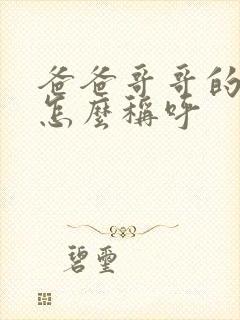 爸爸哥哥的
怎麼稱呼
碧璽